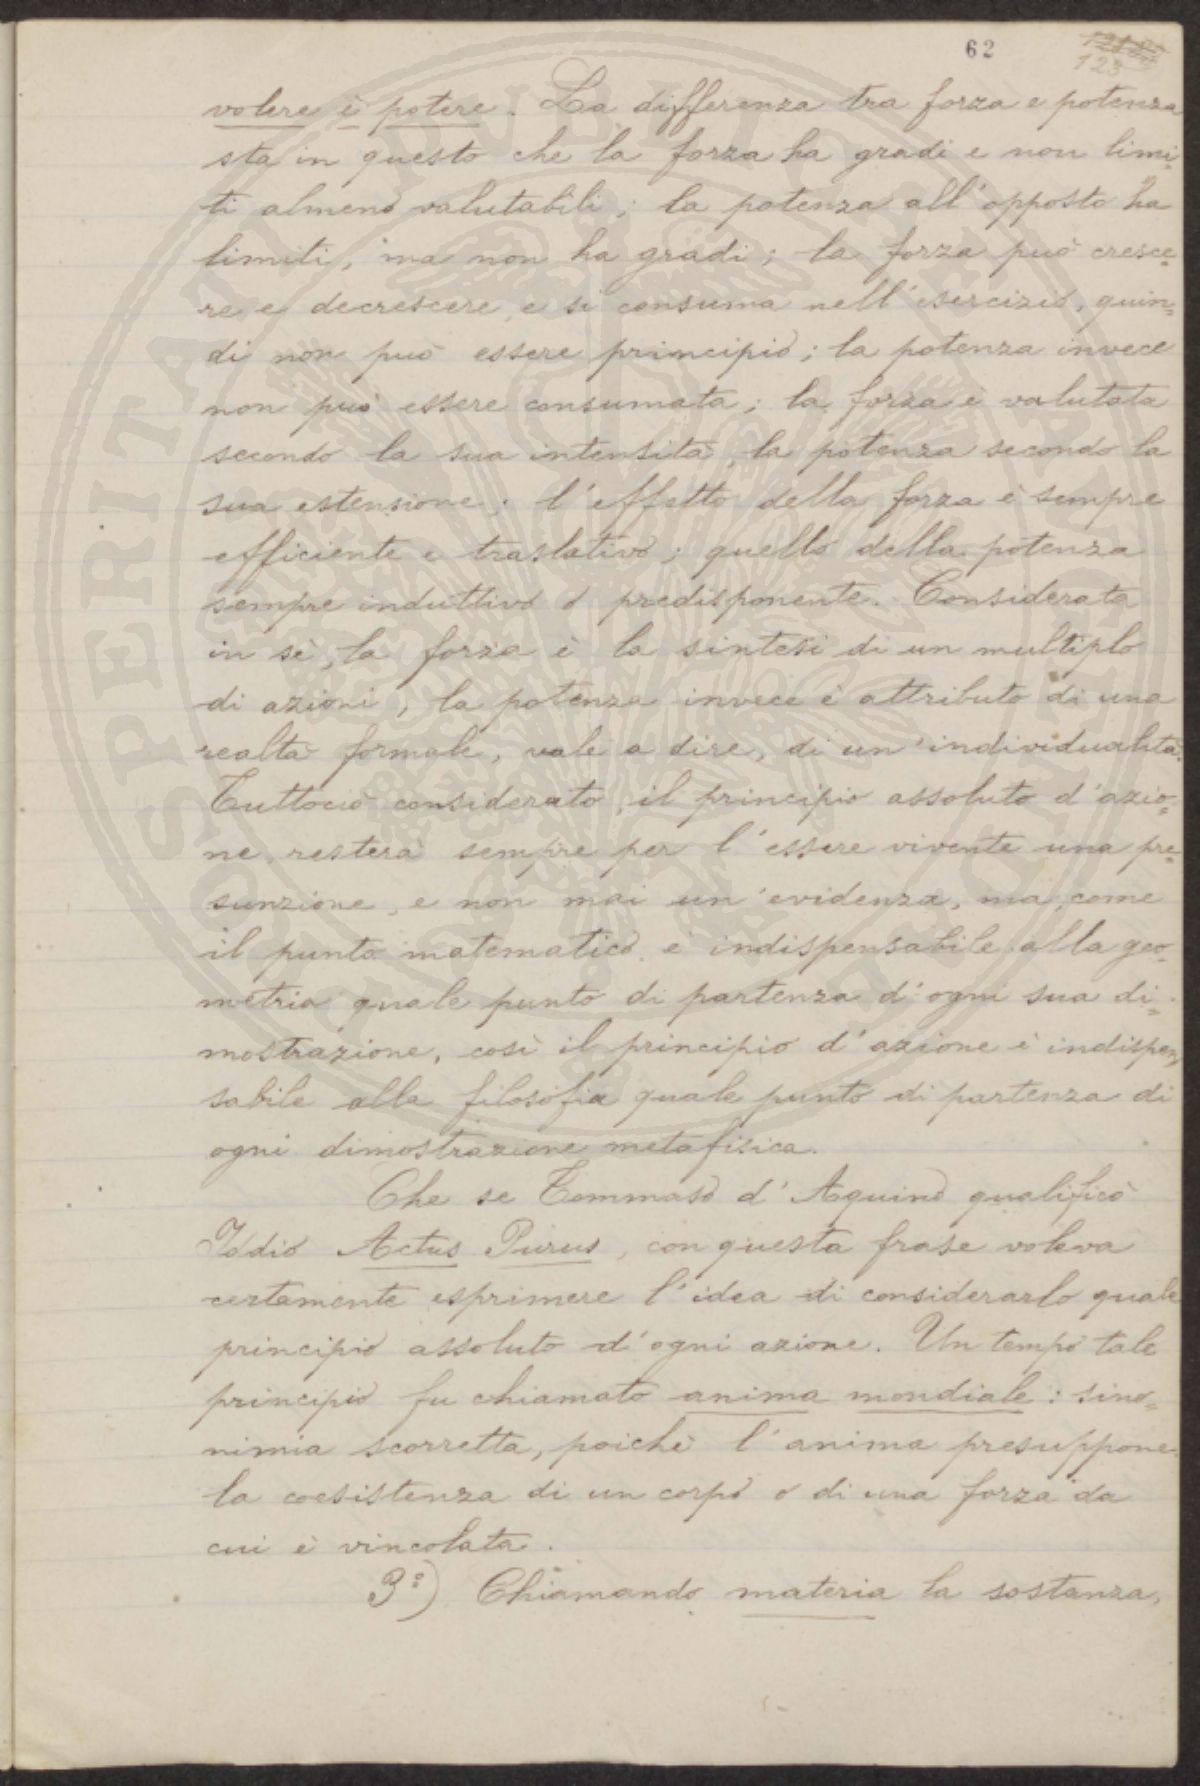 62
123
volere è potere. La differenza tra forza e potenza
sta in questo che la forza ha gradi e non limi-
ti almeno valutabili; la potenza all'opposto ha
limiti, ma non ha gradi; la forza può cresce-
re e decrescere, e si consuma nell'esercizio, quin-
di non può essere principio; la potenza invece
non può essere consumata; la forza è valutata
secondo la sua intensità, la potenza secondo la
sua estensione; l'effetto della forza è sempre
efficiente e traslativo; quello della potenza
sempre induttivo o predisponente. Considerata
in sè, la forza è la sintesi di un multiplo
di azioni, la potenza invece è attributo di una
realtà formale, vale a dire, di un'individualità.
Tuttociò considerato, il principio assoluto d'azio-
ne, resterà sempre per l'essere vivente una pre-
sunzione, e non mai un'evidenza, ma, come
il punto matematico è indispensabile alla geo-
metria quale punto di partenza d'ogni sua di-
mostrazione, così il principio d'azione è indispen-
sabile alla filosofia quale punto di partenza di
ogni dimostrazione metafisica.
Che se Tommaso d'Aquino qualificò
Iddio Actus Purus, con questa frase voleva
certamente esprimere l'idea di considerarlo quale
principio assoluto d'ogni azione. Un tempo tale
principio fu chiamato anima mondiale: sino-
nimia scorretta, poichè l'anima presuppone
la coesistenza di un corpo o di una forza da
cui è vincolata.
3º) Chiamando materia la sostanza,